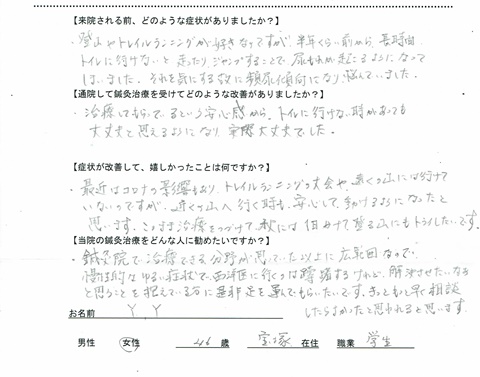 【来院される前、どのような症状がありましたか？】
・登山やトレイルランニングが好きなのですが、半年くらい前から、長時間
トイレに行けないと、走ったり、ジャンプすることで、尿もれが起こるようになって
しまいました。それを気にする故に頻尿傾向になり、悩んでいました。
【通院して鍼灸治療を受けてどのような改善がありましたか？】
・治療してもらっているという安心感から、トイレに行けない時があっても
大丈夫と思えるようになり、実際大丈夫でした。
【症状が改善して、嬉しかったことは何ですか？】
・最近はコロナの影響もあり、トレイルランニングの大会や、遠くの山には行けて
いないのですが、近くの山へ行く時も、安心して、行けるようになったと
思います。このまま治療をつづけて、秋には泊まりで登る山にもトライしたいです。
【当院の鍼灸治療をどんな人に勧めたいですか？】
・鍼灸院で治療できる分野が思っていた以上に広範囲なので、
慢性的なゆるい症状で、西洋医に行くのは躊躇するけれど、解決させたいなる
と思うことを抱えている方に是非足を運んでもらいたいです。きっともっと早く相談
したらよかったと思われると思います。
お名前 Y Y
男性 女性 46 歳 宝塚 在住 職業 学生